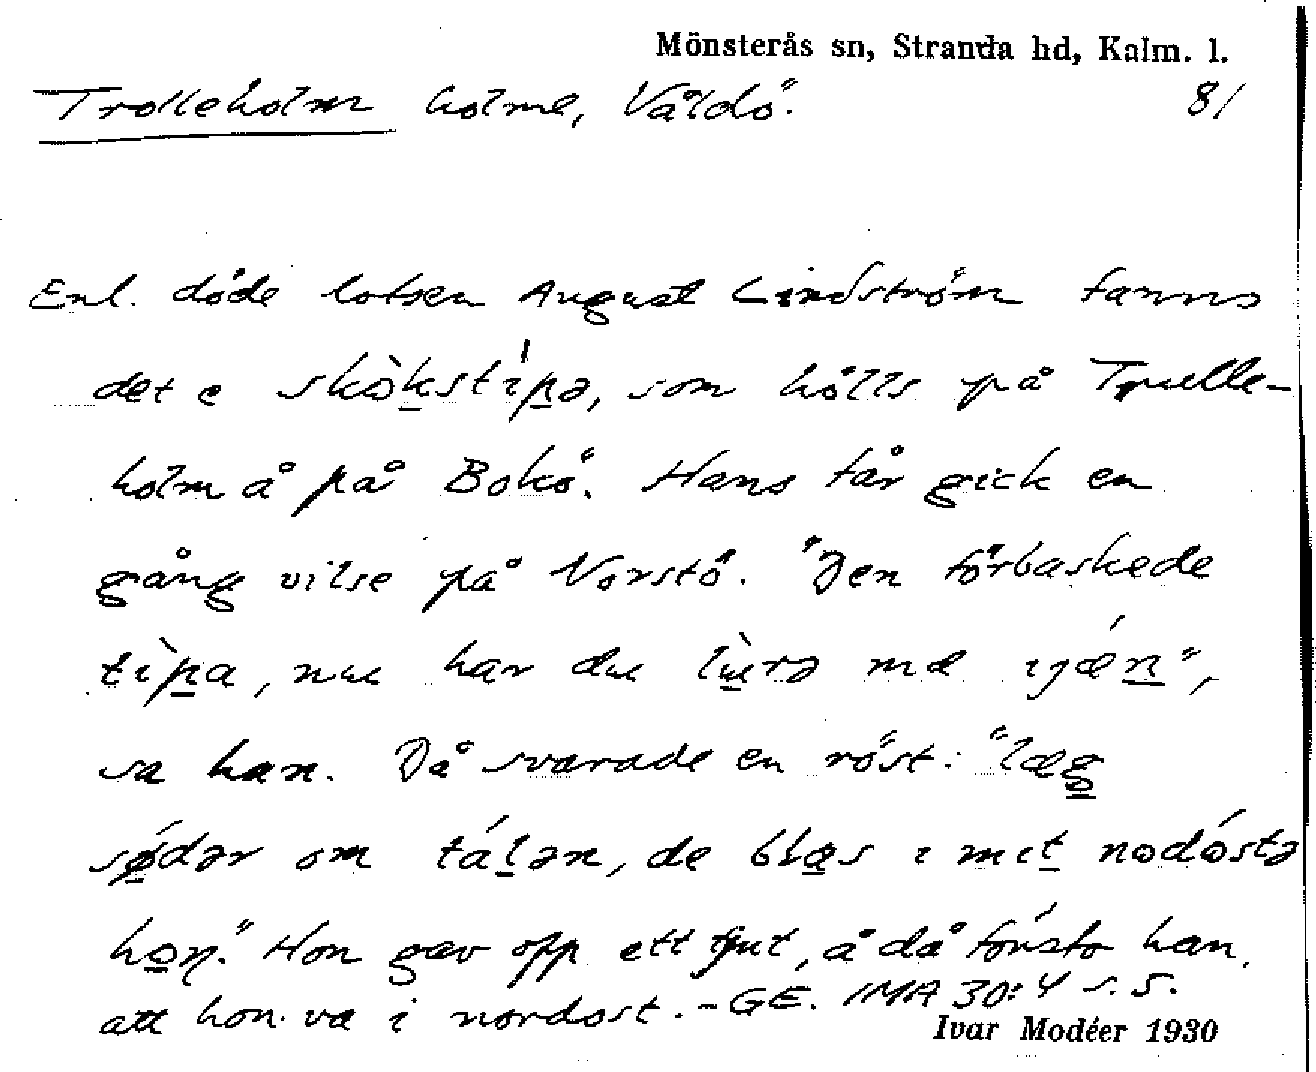 Mönsterås sn, Stranda hd, Kalm. l.
Trolleholm holme, Våldö. 81
Enl. döde lotsen August Lindström fanns
det e skòkstípə, som hölls på Trulle-
holm å på Bokö. Hans far gick en
gång vilse på Norstö. "Den förbaskede
tìpa, nu har du lùrə mæ ijǽn",
sa han. Då svarade en röst: "læg
sǿdər om tálən, de blas i mit nodóstə
hoɳ." Hon gav opp ett tjut, å då försto han,
att hon va i nordost. - GE. IMA 30:4 s. 5.
Ivar Modéer 1930